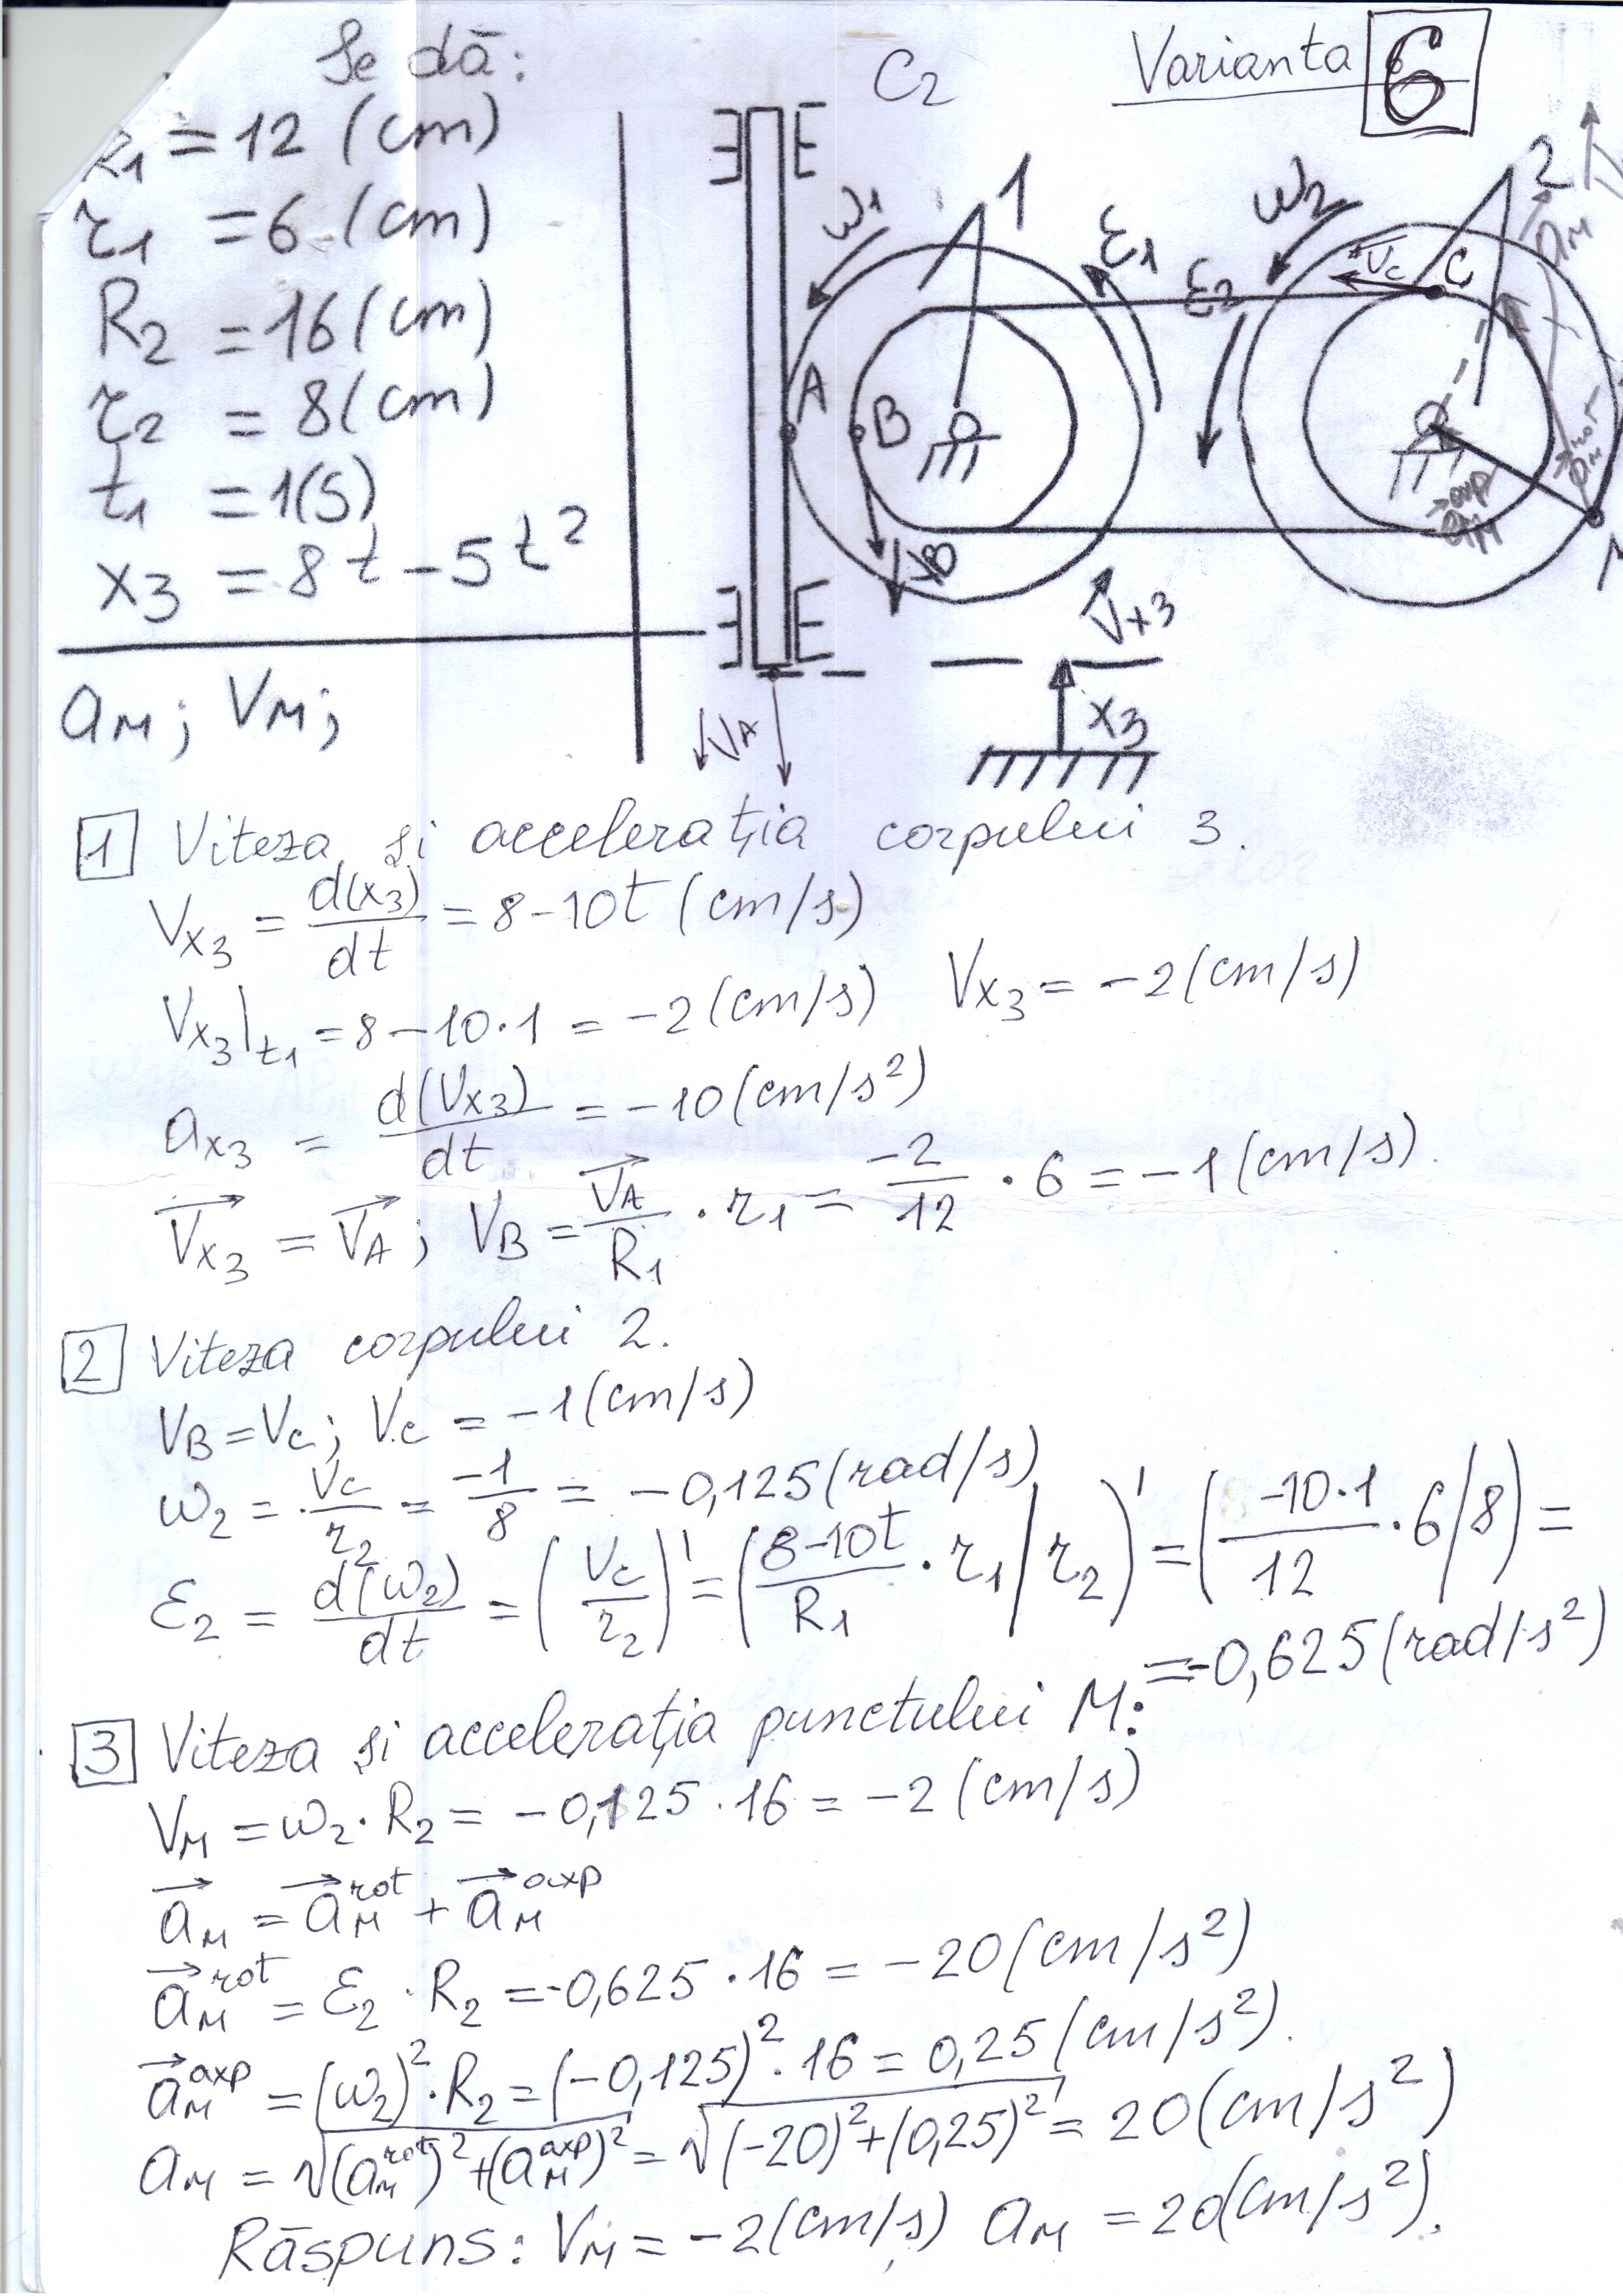 Se dă:
C2
Varianta 6
R1 = 12 (cm)
r1 = 6 (cm)
R2 = 16 (cm)
r2 = 8 (cm)
t1 = 1(S)
x3 = 8t - 5t²
aM; VM;
ω1
1
ε1
ω2
2
ε2
VC
C
aM
A
B
VB
aM rot
aM axp
M
Vx3
x3
VA
1 Viteza și accelerația corpului 3.
Vx3 = d(x3)/dt = 8-10t (cm/s)
Vx3|t1 = 8-10·1 = -2 (cm/s) Vx3 = -2 (cm/s)
ax3 = d(Vx3)/dt = -10 (cm/s²)
Vx3 = VA; VB = VA/R1 · r1 = -2/12 · 6 = -1 (cm/s).
2 Viteza corpului 2.
VB = Vc; Vc = -1 (cm/s)
ω2 = Vc/r2 = -1/8 = -0,125 (rad/s)
ε2 = d(ω2)/dt = (Vc/r2)' = (8-10t/R1 · r1/r2)' = (-10·1/12 · 6/8) =
= -0,625 (rad/s²)
3 Viteza și accelerația punctului M:
VM = ω2 · R2 = -0,125 · 16 = -2 (cm/s)
aM = aM rot + aM axp
aM rot = ε2 · R2 = -0,625 · 16 = -20 (cm/s²)
aM axp = (ω2)² · R2 = (-0,125)² · 16 = 0,25 (cm/s²).
aM = √(aM rot)² + (aM axp)² = √(-20)² + (0,25)² = 20 (cm/s²)
Răspuns: VM = -2 (cm/s) aM = 20 (cm/s²).